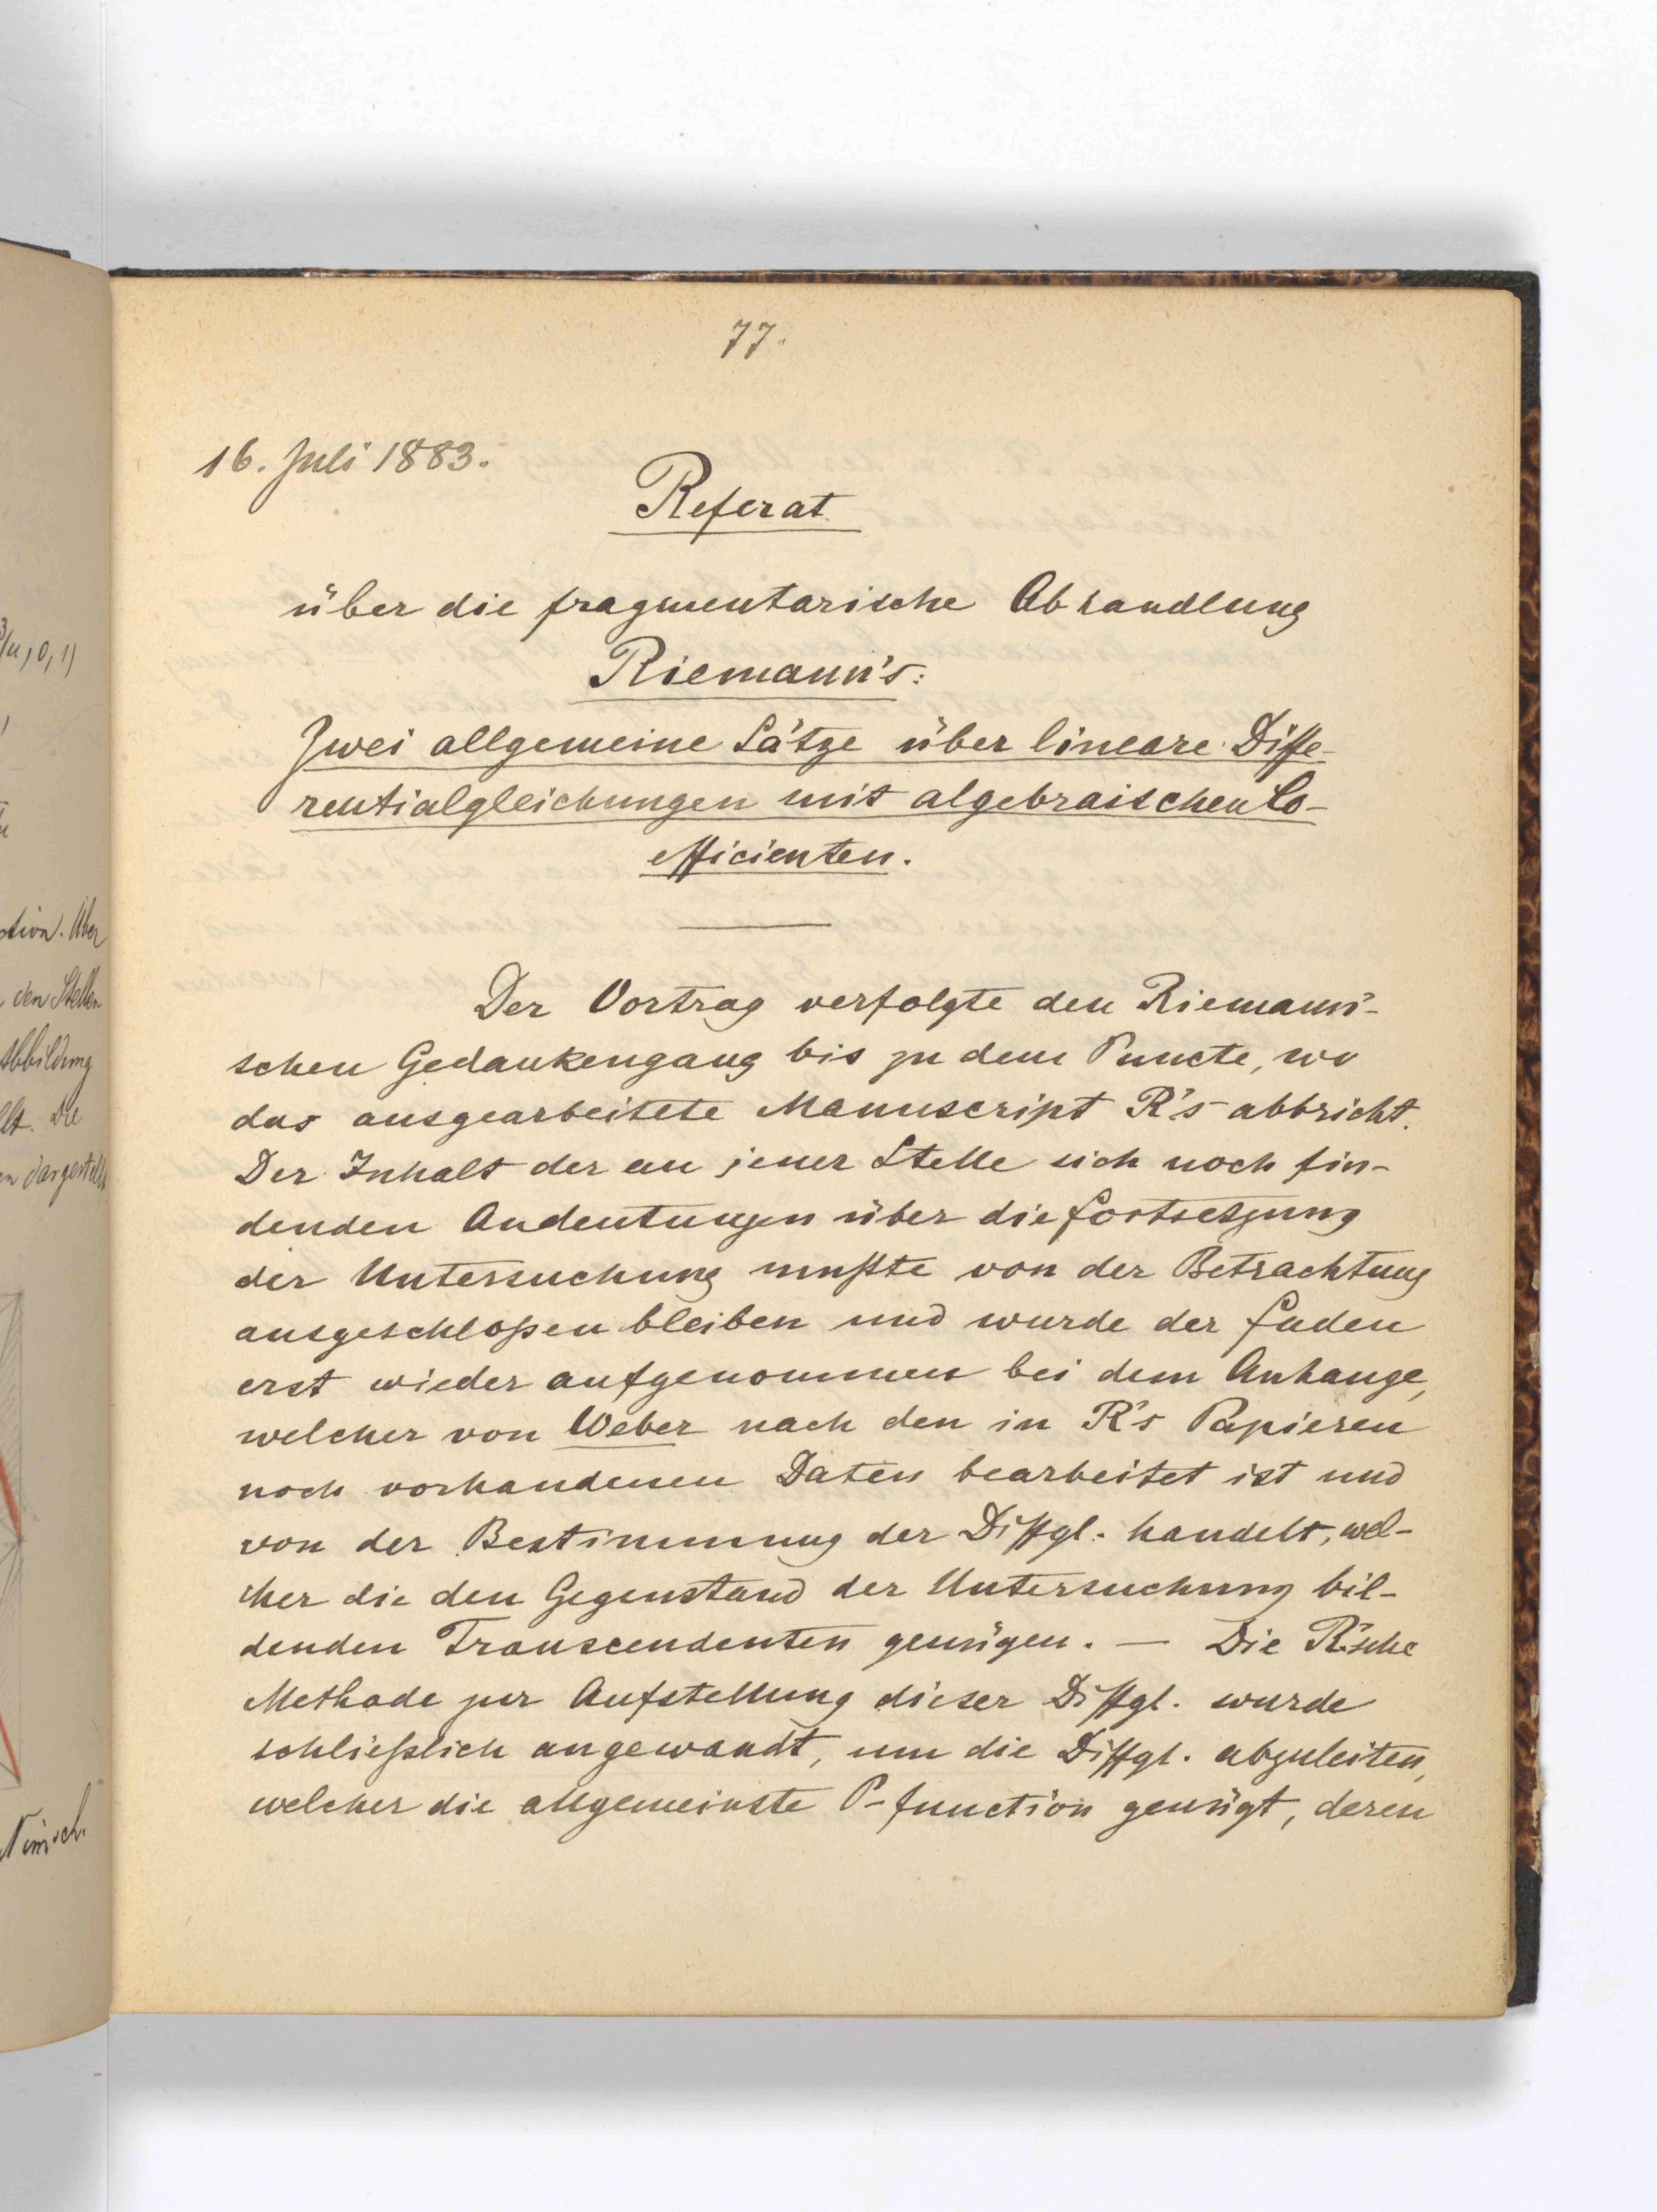 77.
16. Juli 1883.
Referat
über die fragmentarische Abhandlung
Riemann's:
Zwei allgemeine Sätze über lineare Diffe-
rentialgleichungen mit algebraischen Co-
efficienten.
Der Vortrag verfolgte den Riemann'-
schen Gedankengang bis zu dem Puncte, wo
das ausgearbeitete Manuscript R's abbricht.
Der Inhalt der an jener Stelle sich noch fin-
denden Andeutungen über die Fortsetzung
der Untersuchung mußte von der Betrachtung
ausgeschloßen bleiben und wurde der Faden
erst wieder aufgenommen bei dem Anhange,
welcher von Weber nach den in R's Papieren
noch vorhandenen Daten bearbeitet ist und
von der Bestimmung der Diffgl. handelt, wel-
cher die den Gegenstand der Untersuchung bil-
denden Transcendenten genügen. — Die R'sche
Methode zur Aufstellung dieser Diffgl. wurde
schließlich angewandt, um die Diffgl. abzuleiten,
welcher die allgemeinste P-function genügt, deren
3/u, 0, 1)
ction. Über
den Stellen
Abbildung
lt. Die
n dargestellt